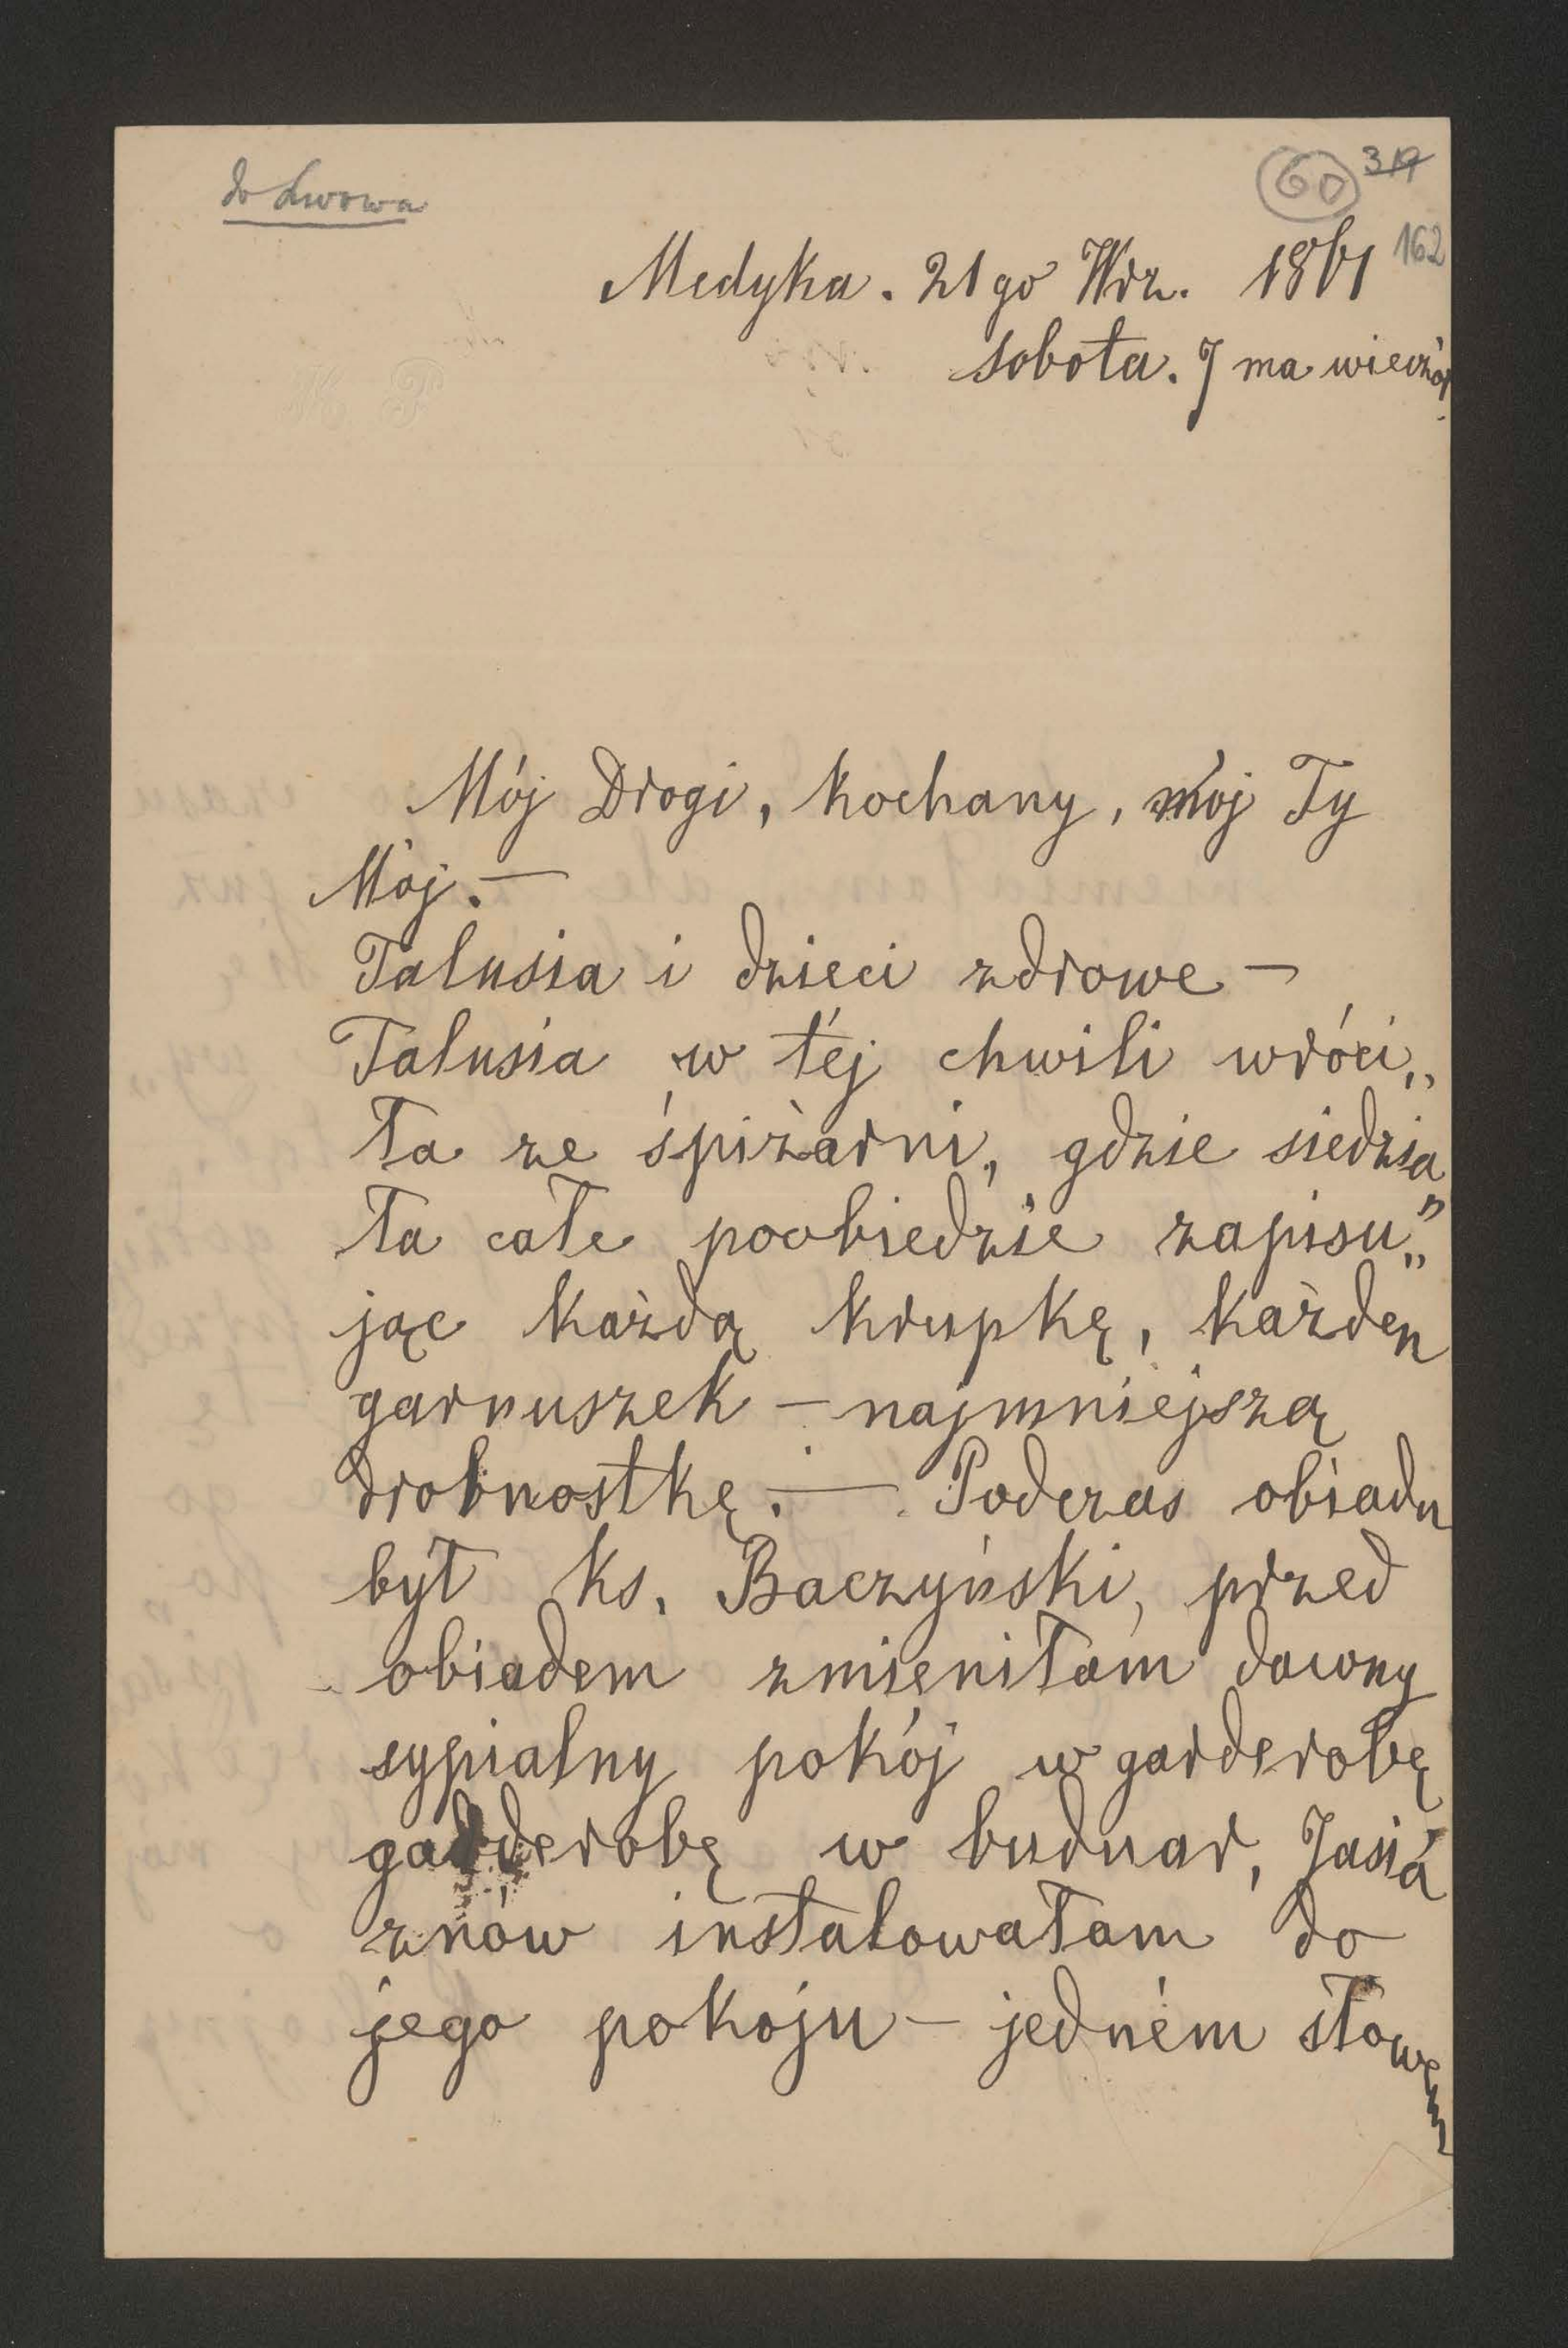 do Lwowa
60 319
162
Medyka. 21go Wrz. 1861
sobota. 7ma wieczór.
Mój Drogi, kochany, mój Ty
Mój. —
Talusia i dzieci zdrowe —
Talusia w téj chwili wróci„
ła ze śpiżarni, gdzie siedzia„
ła całe poobiedzie zapisu„
jąc każdą krupkę, każden
garnuszek — najmniejszą
drobnostkę. — Podczas obiadu
był ks. Baczyński, przed
obiadem zmieniłam dawny
sypialny pokój w garderobę
garderobę w buduar, Jasia
znów instalowałam do
jego pokoju — jedném słowem